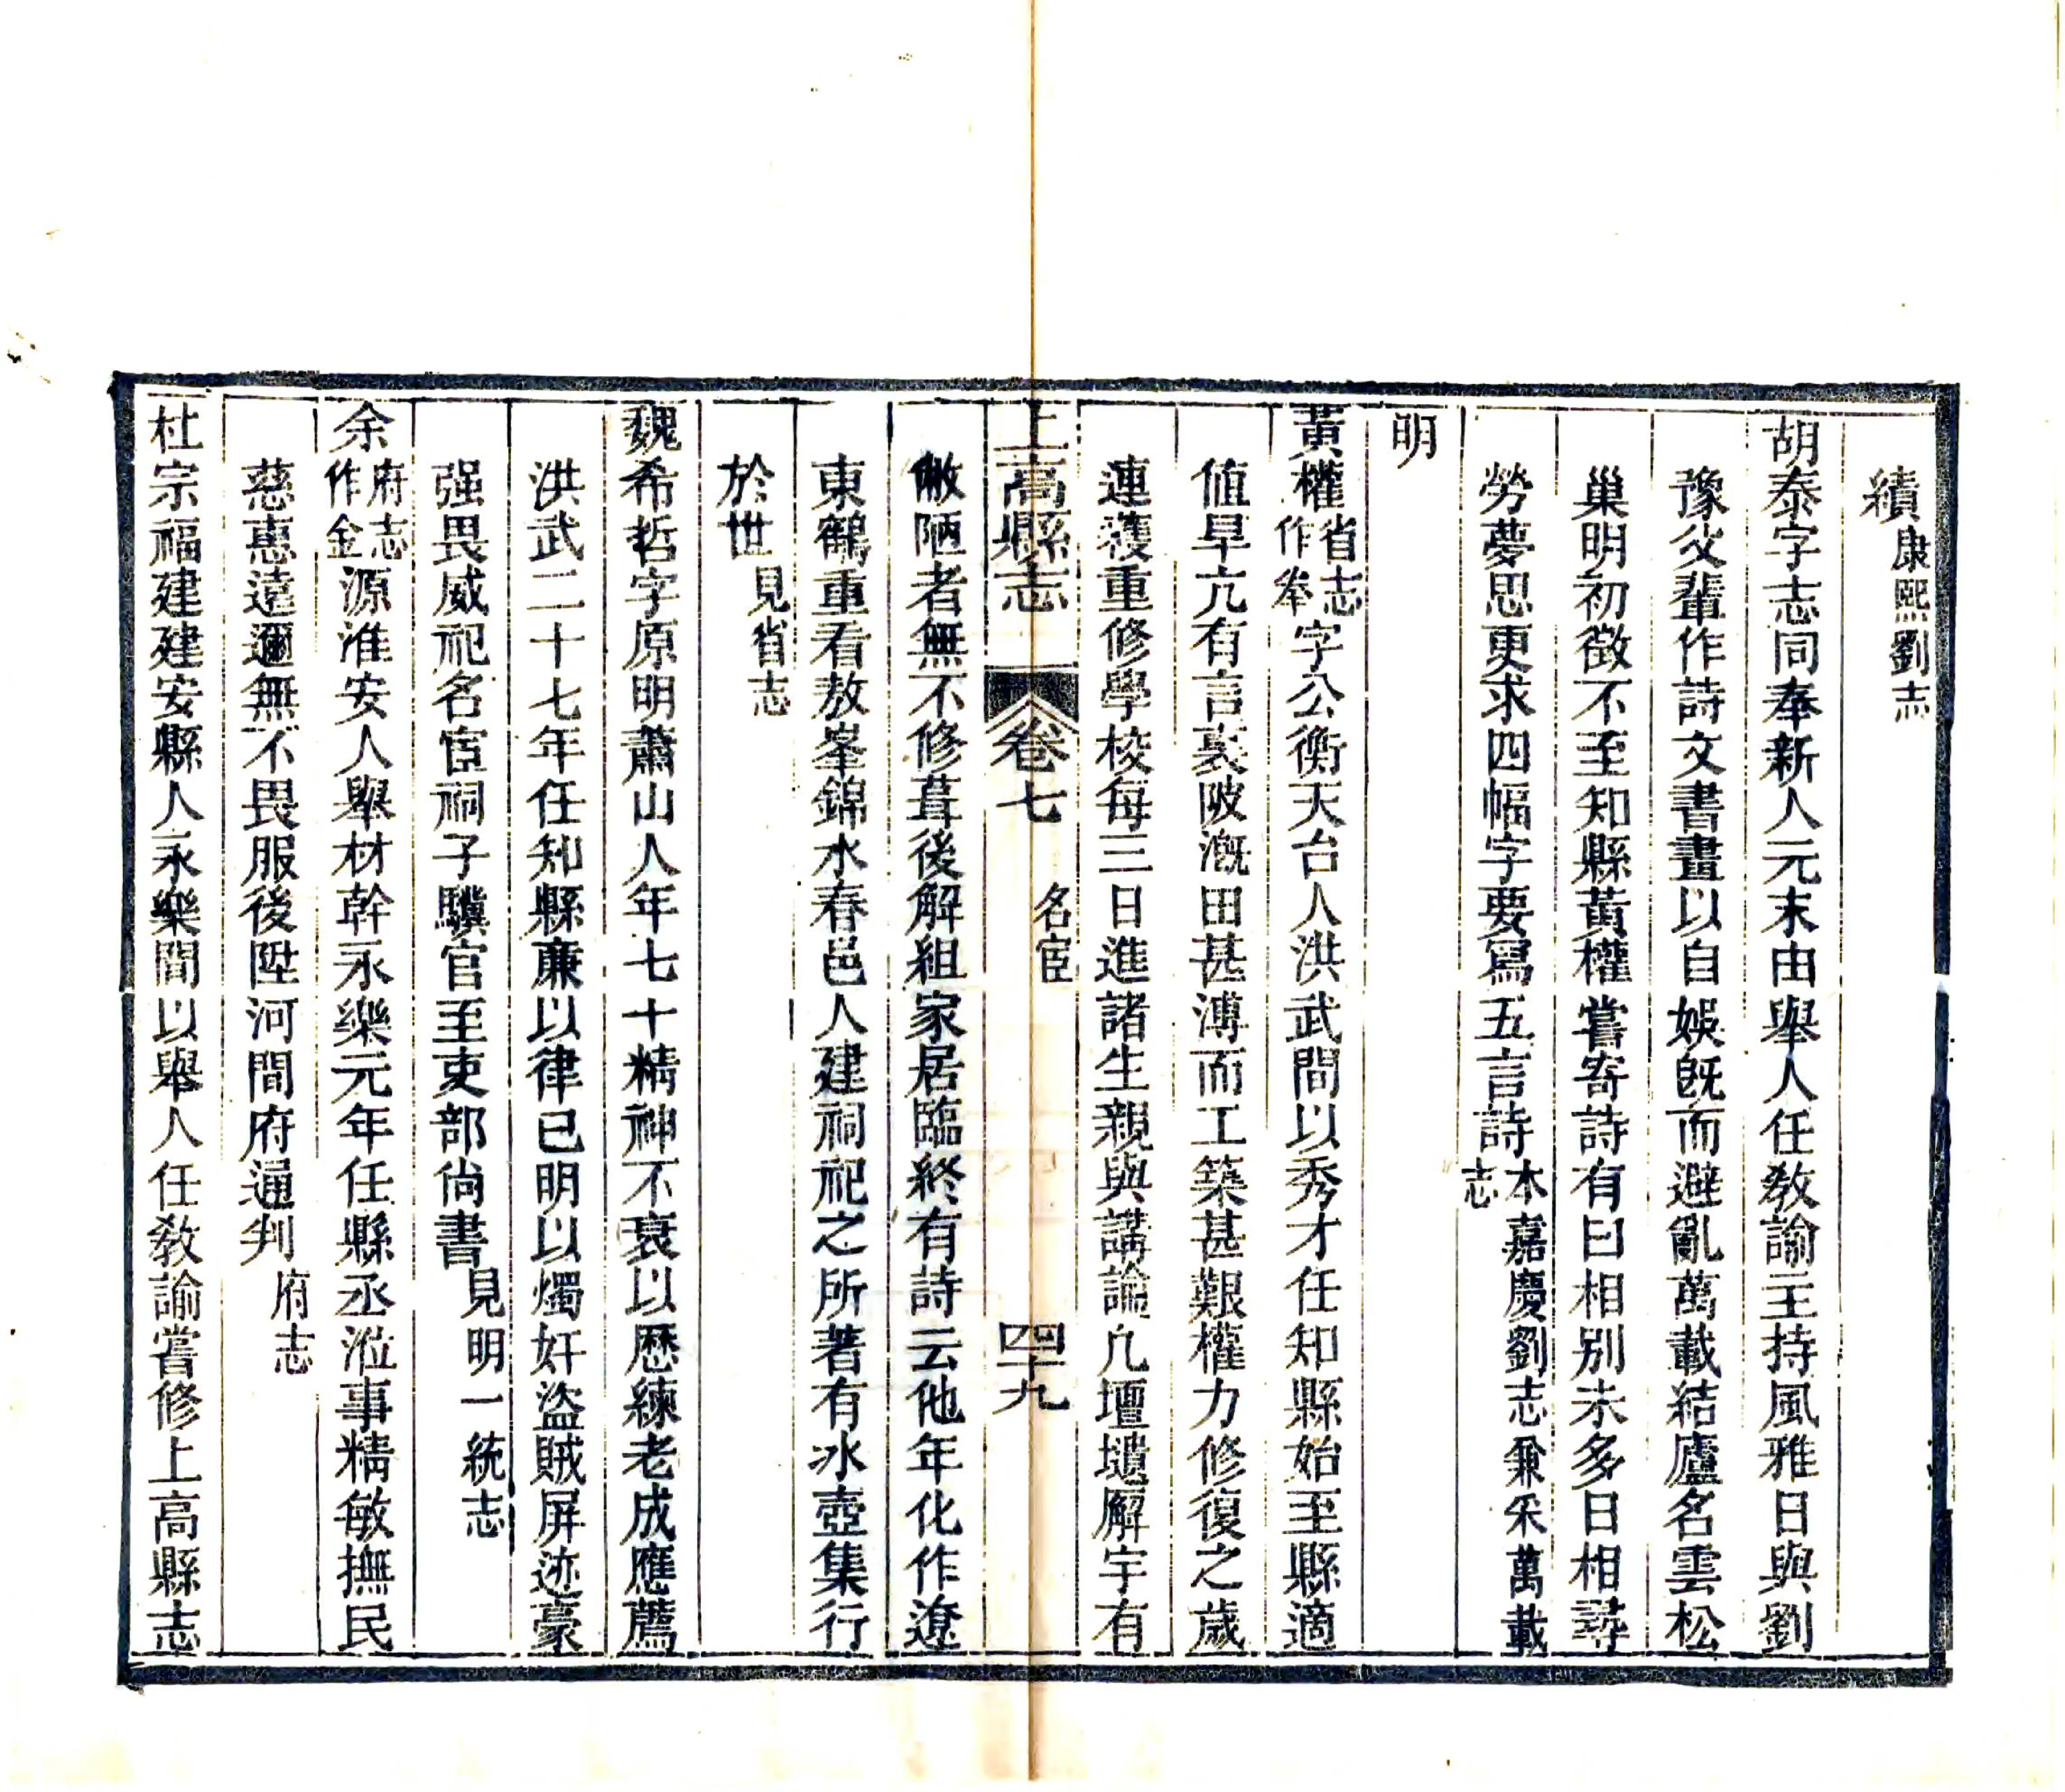 續康熙劉志
胡泰字志同奉新人元末由舉人任教諭主持風雅日與劉
豫父輩作詩文書畫以自娛旣而避亂萬載結廬名雲松
巢明初徵不至知縣黃權嘗寄詩有曰相別未多日相尋
勞夢思更求四幅字要寫五言詩本嘉慶劉志兼采萬載志
明
黃權省志作拳字公衡天台人洪武間以秀才任知縣始至縣適
値旱亢有言裏陂漑田甚溥而工築甚艱權力修復之歲
連穫重修學校每三日進諸生親與講論凡壇壝廨宇有
上高縣志 卷七 名宦 四十九
敝陋者無不修葺後解組家居臨終有詩云他年化作遼
東鶴重看敖峯錦水春邑人建祠祀之所著有冰壺集行
於世見省志
魏希哲字原明蕭山人年七十精神不衰以歷練老成應薦
洪武二十七年任知縣廉以律己明以燭奸盜賊屏迹豪
强畏威祀名宦祠子驥官至吏部尙書見明一統志
余府志作金源淮安人舉材幹永樂元年任縣丞涖事精敏撫民
慈惠遠邇無不畏服後陞河間府通判府志
杜宗福建建安縣人永樂間以舉人任教諭嘗修上高縣志